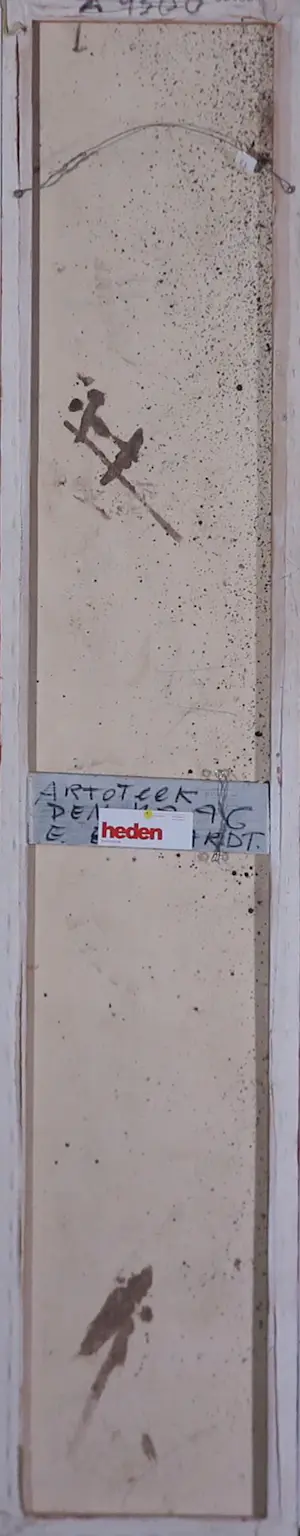 A 9300
L.
ARTOTEEK
DEN AG
E. RDT.
heden